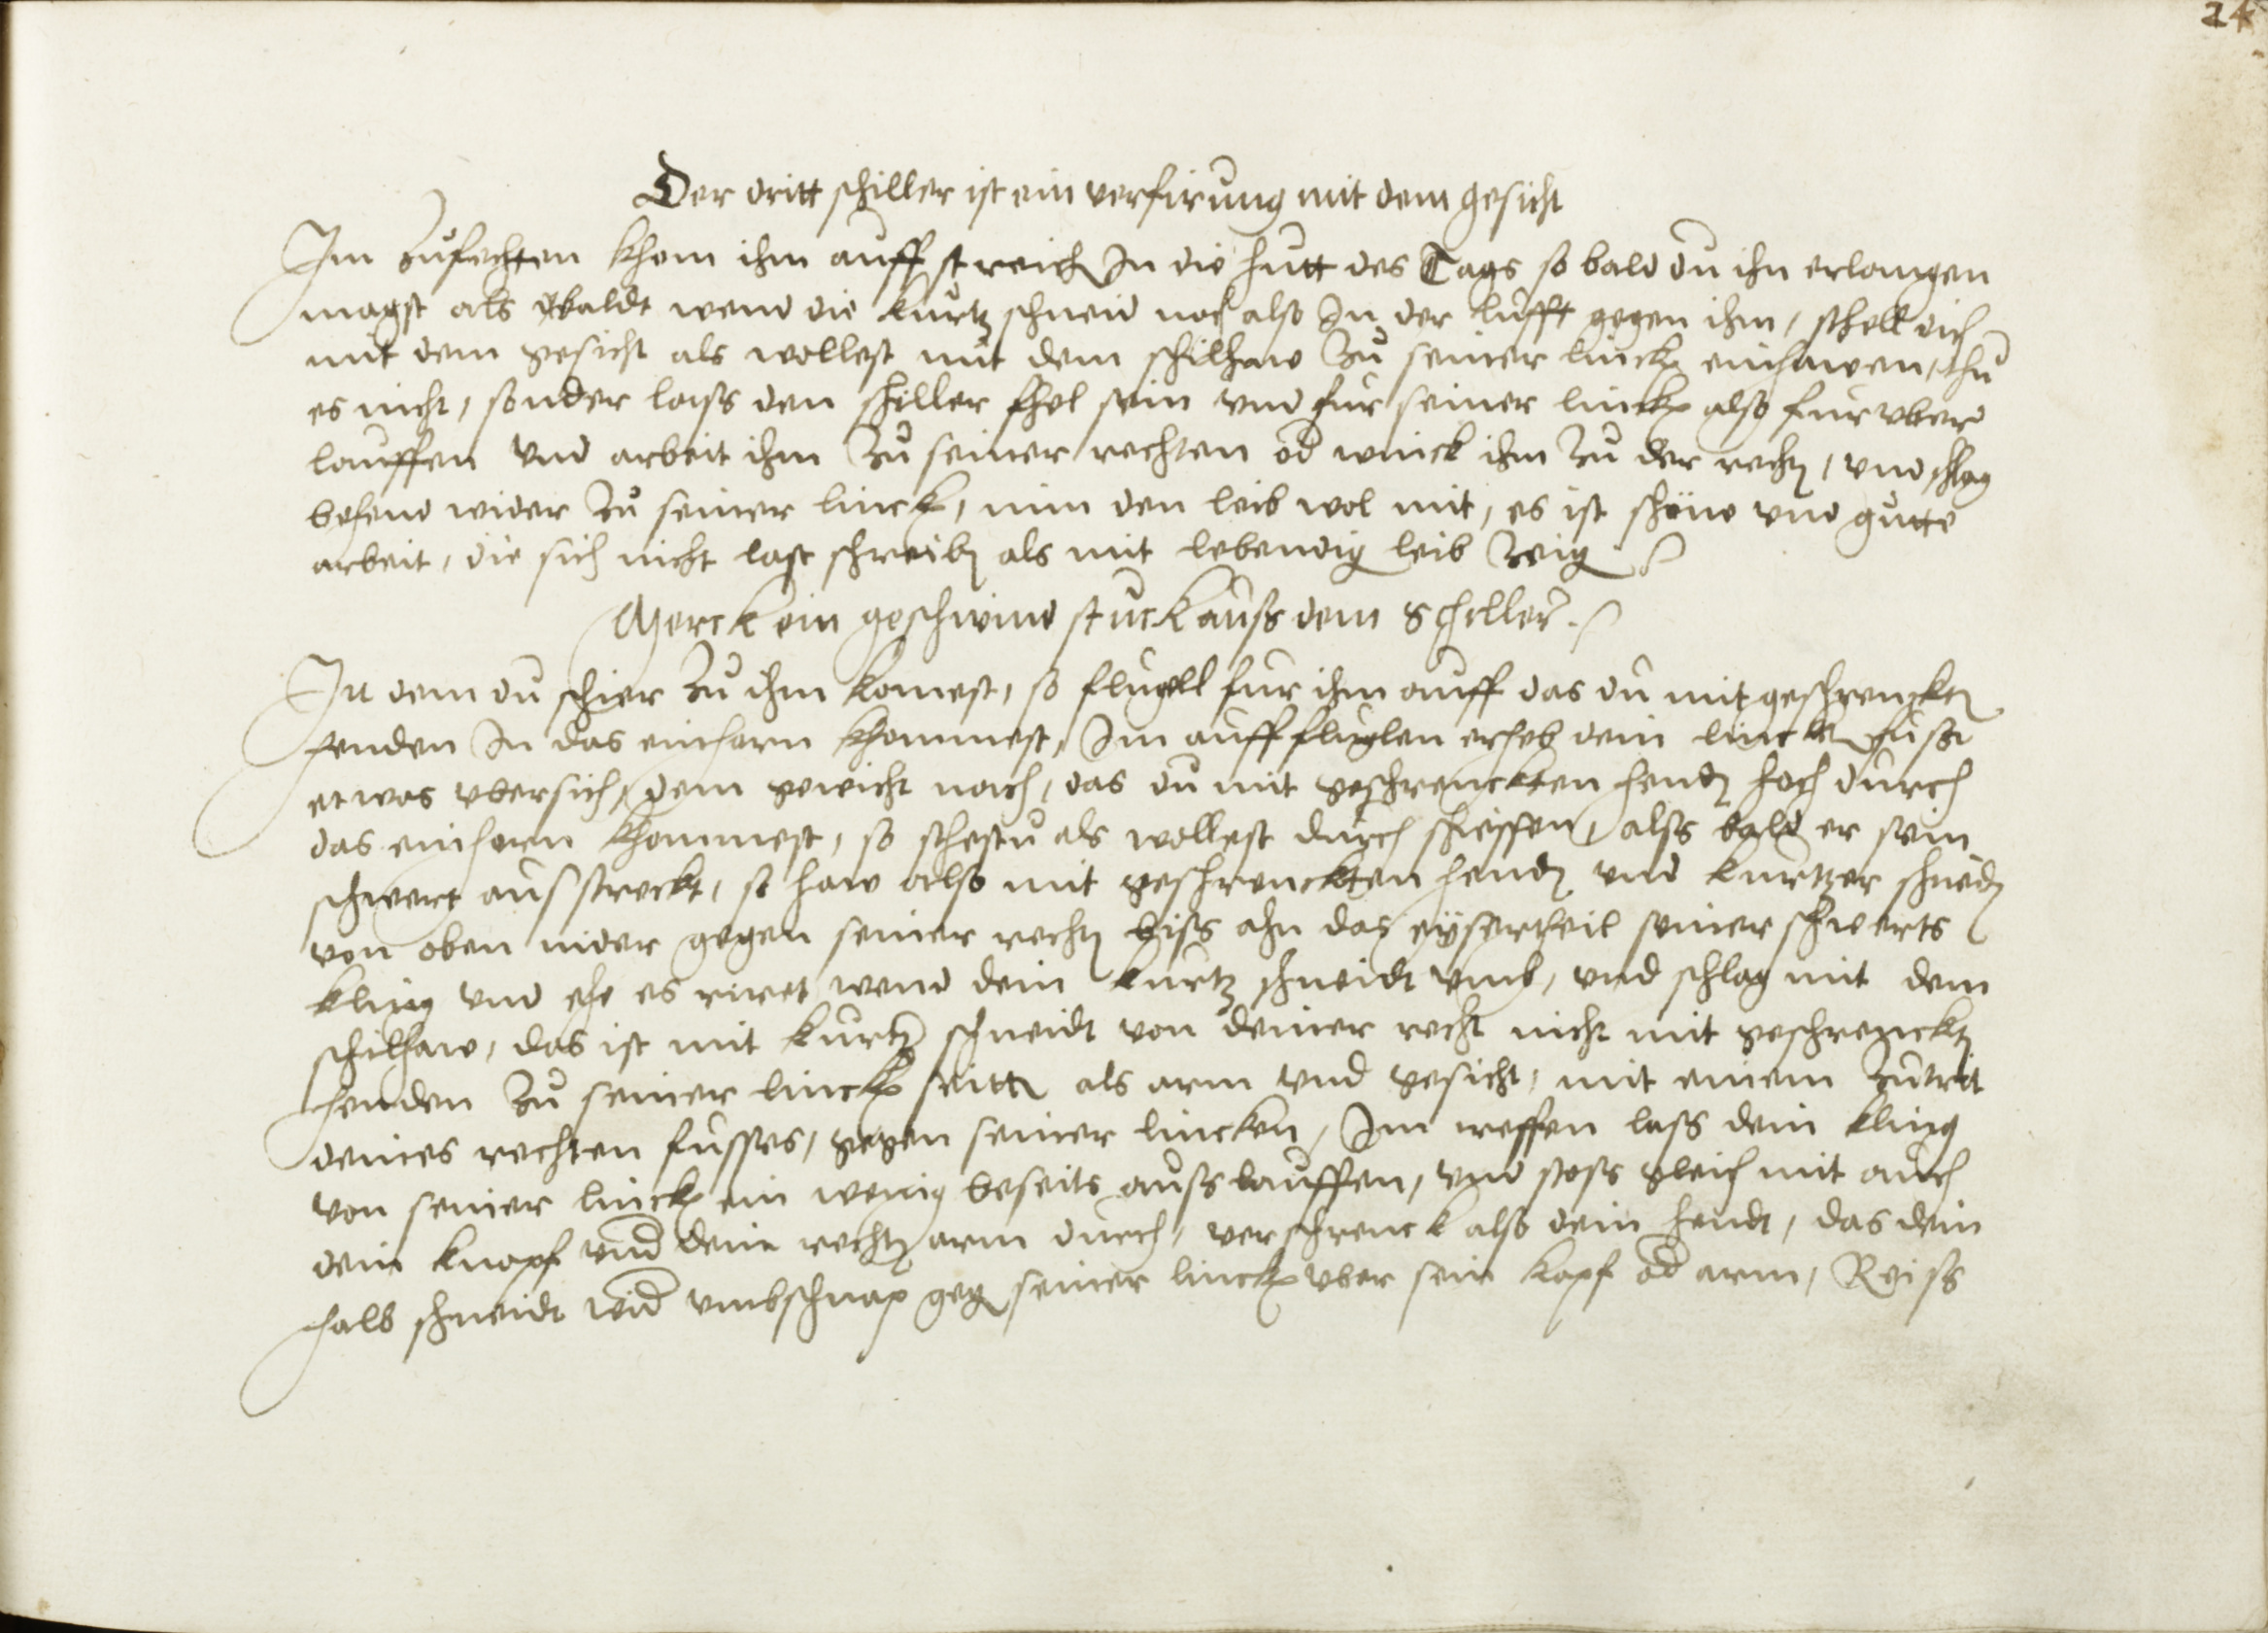 24
Der dritt schiller ist ein verfirung mit dem gesicht
Im zufechten khom ihm auffstreich In die hutt des Tags so bald du ihn erlangen
magst als baldt wend die kurtz schneid noch also In der lufft gegen ihm, schell dich
mit dem gesicht als wollest mit dem schilhaw zu seiner linck einhawen, thu
es nicht, sonder lass den schiller fhel sein vnd fur seiner linck also furvber
lauffen vnd arbeit ihm zu seiner rechten od winck ihm zu der recht, vnd schlag
behend wider zu seiner linck, nim den leib wol mit, es ist schöne vnd gutte
arbeit, die sich nicht last schreib als mit lebendig leib zeig
Merck ein geschwind stuck auss dem Schiller.
In dem du schier zu ihm komest, so flugell fur ihm auff das du mit geschrenckt
henden In das einhorn khommest, Im auffflüglen erheb dein lincken fuss
etwas vbersich, dem gewicht nach, das du mit geschrenckten hend hoch durch
das einhorn khommest, so schestu als wollest durch schiessen, alss bald er sein
schwert ausstreckt, so haw also mit geschrenckten hend vnd kurtzer schneid
von oben nider gegen seiner recht biss ahn das eÿsertheil seiner schwerts
kling vnd ehe es riret wend dein kurtz schneidt vmb, vnd schlag mit dem
schilhaw, das ist mit kurtz schneidt von deiner recht nicht mit geschrenckt
henden zu seiner linck seitt als arm vnd gesicht, mit einem zutrit
deines rechten fusses, gegen seiner lincken, Im treffen lass dein kling
von seiner linck ein wenig beseits ausslauffen, vnd stoss gleich mit auch
dein knopf vnd dein recht arm durch, verschrenck also dein hendt, das dein
halb schneidt wid vmbschnap geg seiner linck vber sein kopf od arm, Reiss